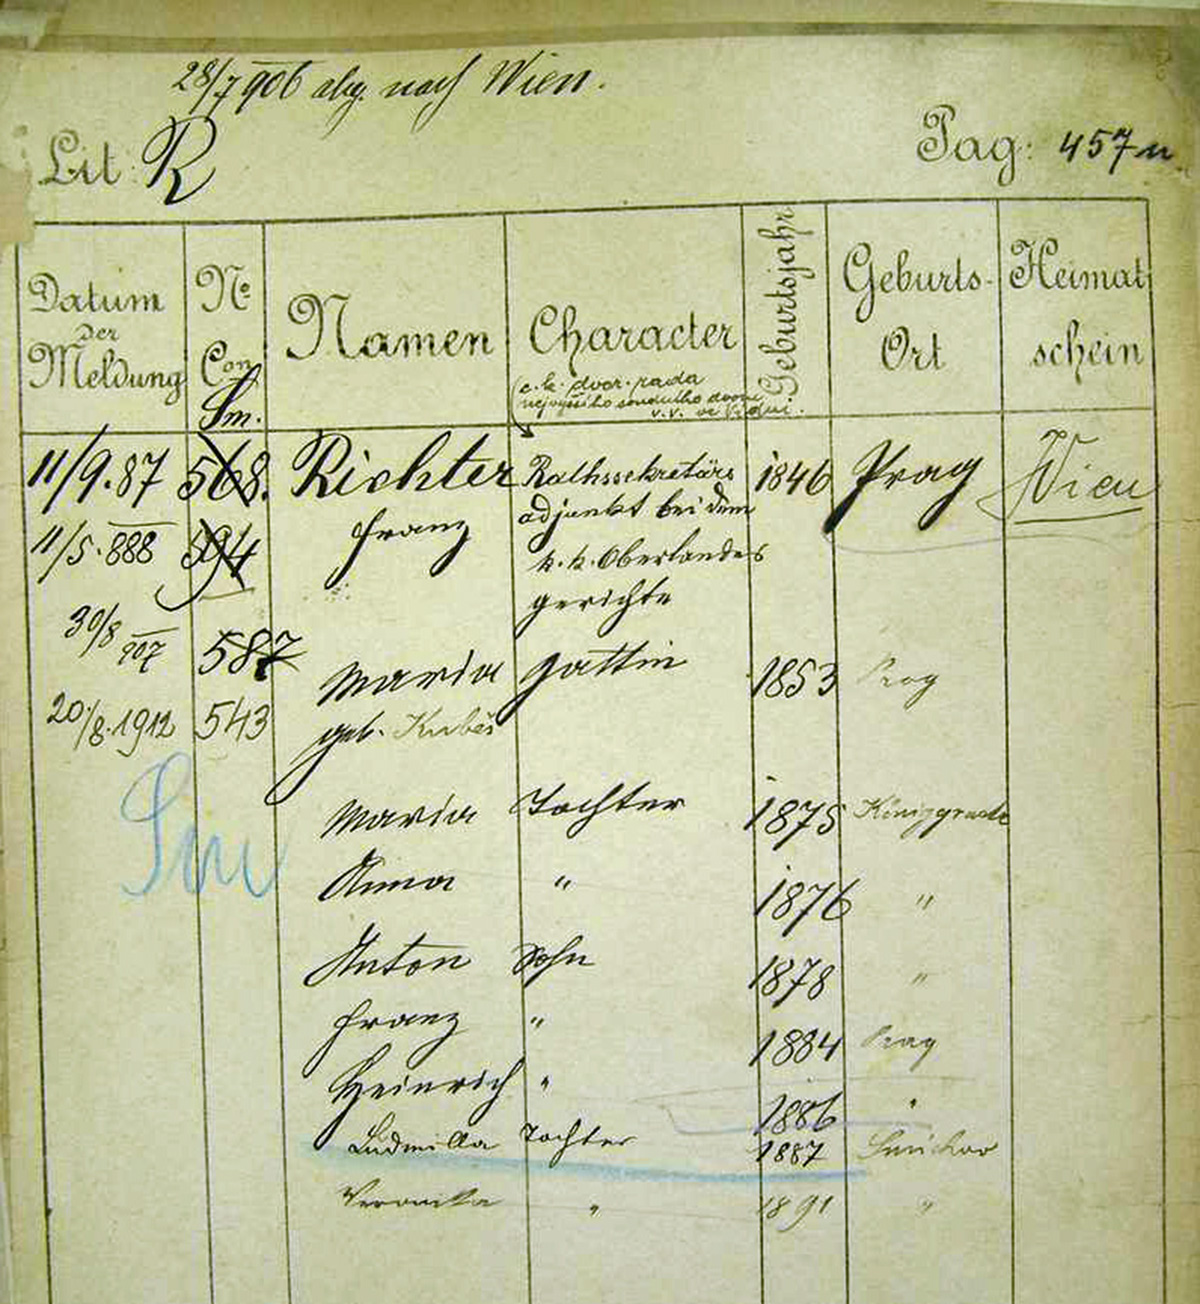 28/7 906 abg. nach Wien.
Lit: R
Pag: 457
Datum der Meldung
No Con
Sm.
Namen
Character
Geburtsjahr
Geburts-Ort
Heimat schein
c.k. dvor. rada
nejvyššího soudního dvora
v.v. ve Vídni.
11/9.87 568. Richter Rathssekretärs 1846 Prag Wien
Franz adjunkt bei dem
11/5.888 594 k.k. Oberlandes
gerichte
30/8 907 587 Maria Gattin 1853 Prag
20./8.1912 543 geb. Kubeš
Sm
Maria Tochter 1875 Königgraetz
Anna " 1876 "
Anton Sohn 1878 "
Franz " 1884 Prag
Heinrich " 1886 "
Ludmilla Tochter 1887 Smichov
Veronika " 1891 "